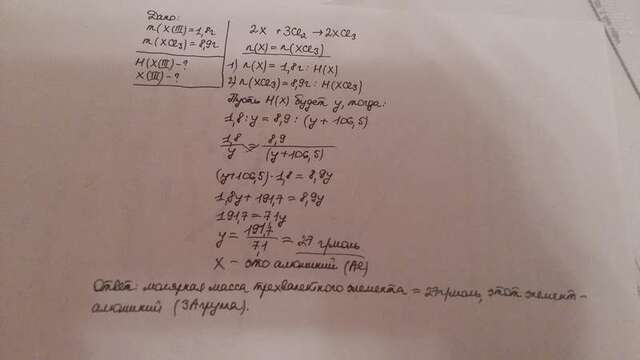 Дано:
m(X(III)) = 1,8г
m(XCl₃) = 8,9г
M(X(III) - ?
X(III) - ?
2X + 3Cl₂ → 2XCl₃
n(X) = n(XCl₃)
1) n(X) = 1,8г : M(X)
2) n(XCl₃) = 8,9г : M(XCl₃)
Пусть M(X) будет y, тогда:
1,8 : y = 8,9 : (y + 106,5)
1,8/y = 8,9/(y + 106,5)
(y + 106,5) · 1,8 = 8,9y
1,8y + 191,7 = 8,9y
191,7 = 7,1y
y = 191,7/7,1 = 27 г/моль
X - это алюминий (Al)
Ответ: молярная масса трехвалентного элемента = 27 г/моль, этот элемент-
алюминий (3А группа).